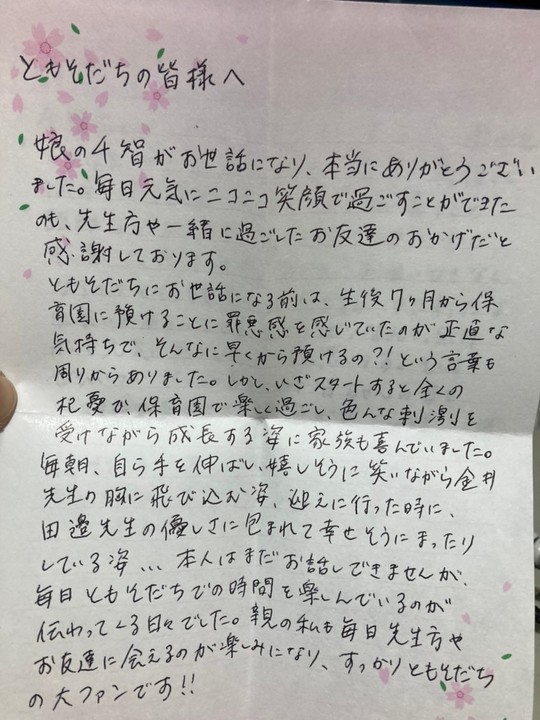 ともそだちの皆様へ
娘の千智がお世話になり、本当にありがとうござい
ました。毎日元気にニコニコ笑顔で過ごすことができた
のも、先生方や一緒に過ごしたお友達のおかげだと
感謝しております。
ともそだちにお世話になる前は、生後7ヶ月から保
育園に預けることに罪悪感を感じていたのが正直な
気持ちで、そんなに早くから預けるの?!という言葉も
周りからありました。しかし、いざスタートすると全くの
杞憂で、保育園で楽しく過ごし、色んな刺激を
受けながら成長する姿に家族も喜んでいました。
毎朝、自ら手を伸ばし、嬉しそうに笑いながら金井
先生の胸に飛び込む姿、迎えに行った時に、
田邉先生の優しさに包まれて幸せそうにまったり
している姿...本人はまだお話しできませんが、
毎日ともそだちでの時間を楽しんでいるのが
伝わってくる日々でした。親の私も毎日先生方や
お友達に会えるのが楽しみになり、すっかりともそだち
の大ファンです!!